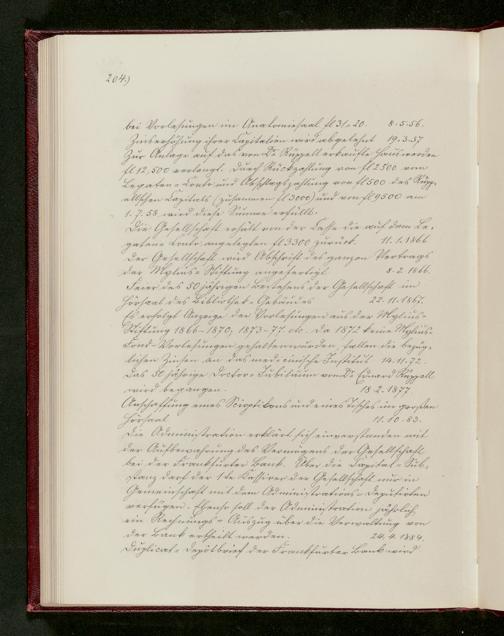 204)
bei Vorlesungen im Anatomiesaal fl 31.20. 8.5.56.
Zinserhöhung ihrer Capitalien wird abgelehnt 19.3.57
Zur Anlage auf das von Dr Rüppell erkaufte Haus werden
fl 12,500 verlangt. Durch Rückzahlung von fl 2500 vom
Legaten-Conto und Abschlagszahlung von fl 500 des Rüpp-
ell'schen Capitals (zusammen fl 3000) und von fl 9500 am
1.7.58 wird diese Summe erfüllt.
Die Gesellschaft erhält von der Casse die auf dem Le-
gaten Conto angelegten fl 3300 zurück. 11.1.1866
Der Gesellschaft wird Abschrift des ganzen Vertrags
der Mylius Stiftung angefertigt 8.2.1866.
Feier des 50 jährigen Bestehens der Gesellschaft im
Hörsaal des Bibliothek-Gebäudes 22.11.1867.
Es erfolgt Anzeige der Vorlesungen aus der Mylius-
Stiftung 1866-1870, 1873-77 ab. Da 1872 keine Mylius-
Fond-Vorlesungen gehalten worden, fallen die bezüg-
lichen Zinsen an das medicinische Institut 14.11.72.
Das 50 jährige Doctor-Jubiläum von Dr Eduard Rüppell
wird begangen. 18.2.1877
Anschaffung eines Scioptikons und eines Tisches im großen
Hörsaal 11.10.83.
Die Administration erklärt sich einverstanden mit
der Aufbewahrung des Vermögens der Gesellschaft
bei der Frankfurter Bank. Über die Capital-Sub-
stanz darf der 1te Kassirer der Gesellschaft nur in
Gemeinschaft mit dem Administrations-Deputirten
verfügen. Ebenso soll der Administration jährlich
ein Rechnungs-Auszug über die Verwaltung von
der Bank ertheilt werden. 24.4.1884.
Duplicat-Depôtbrief der Frankfurter Bank wird